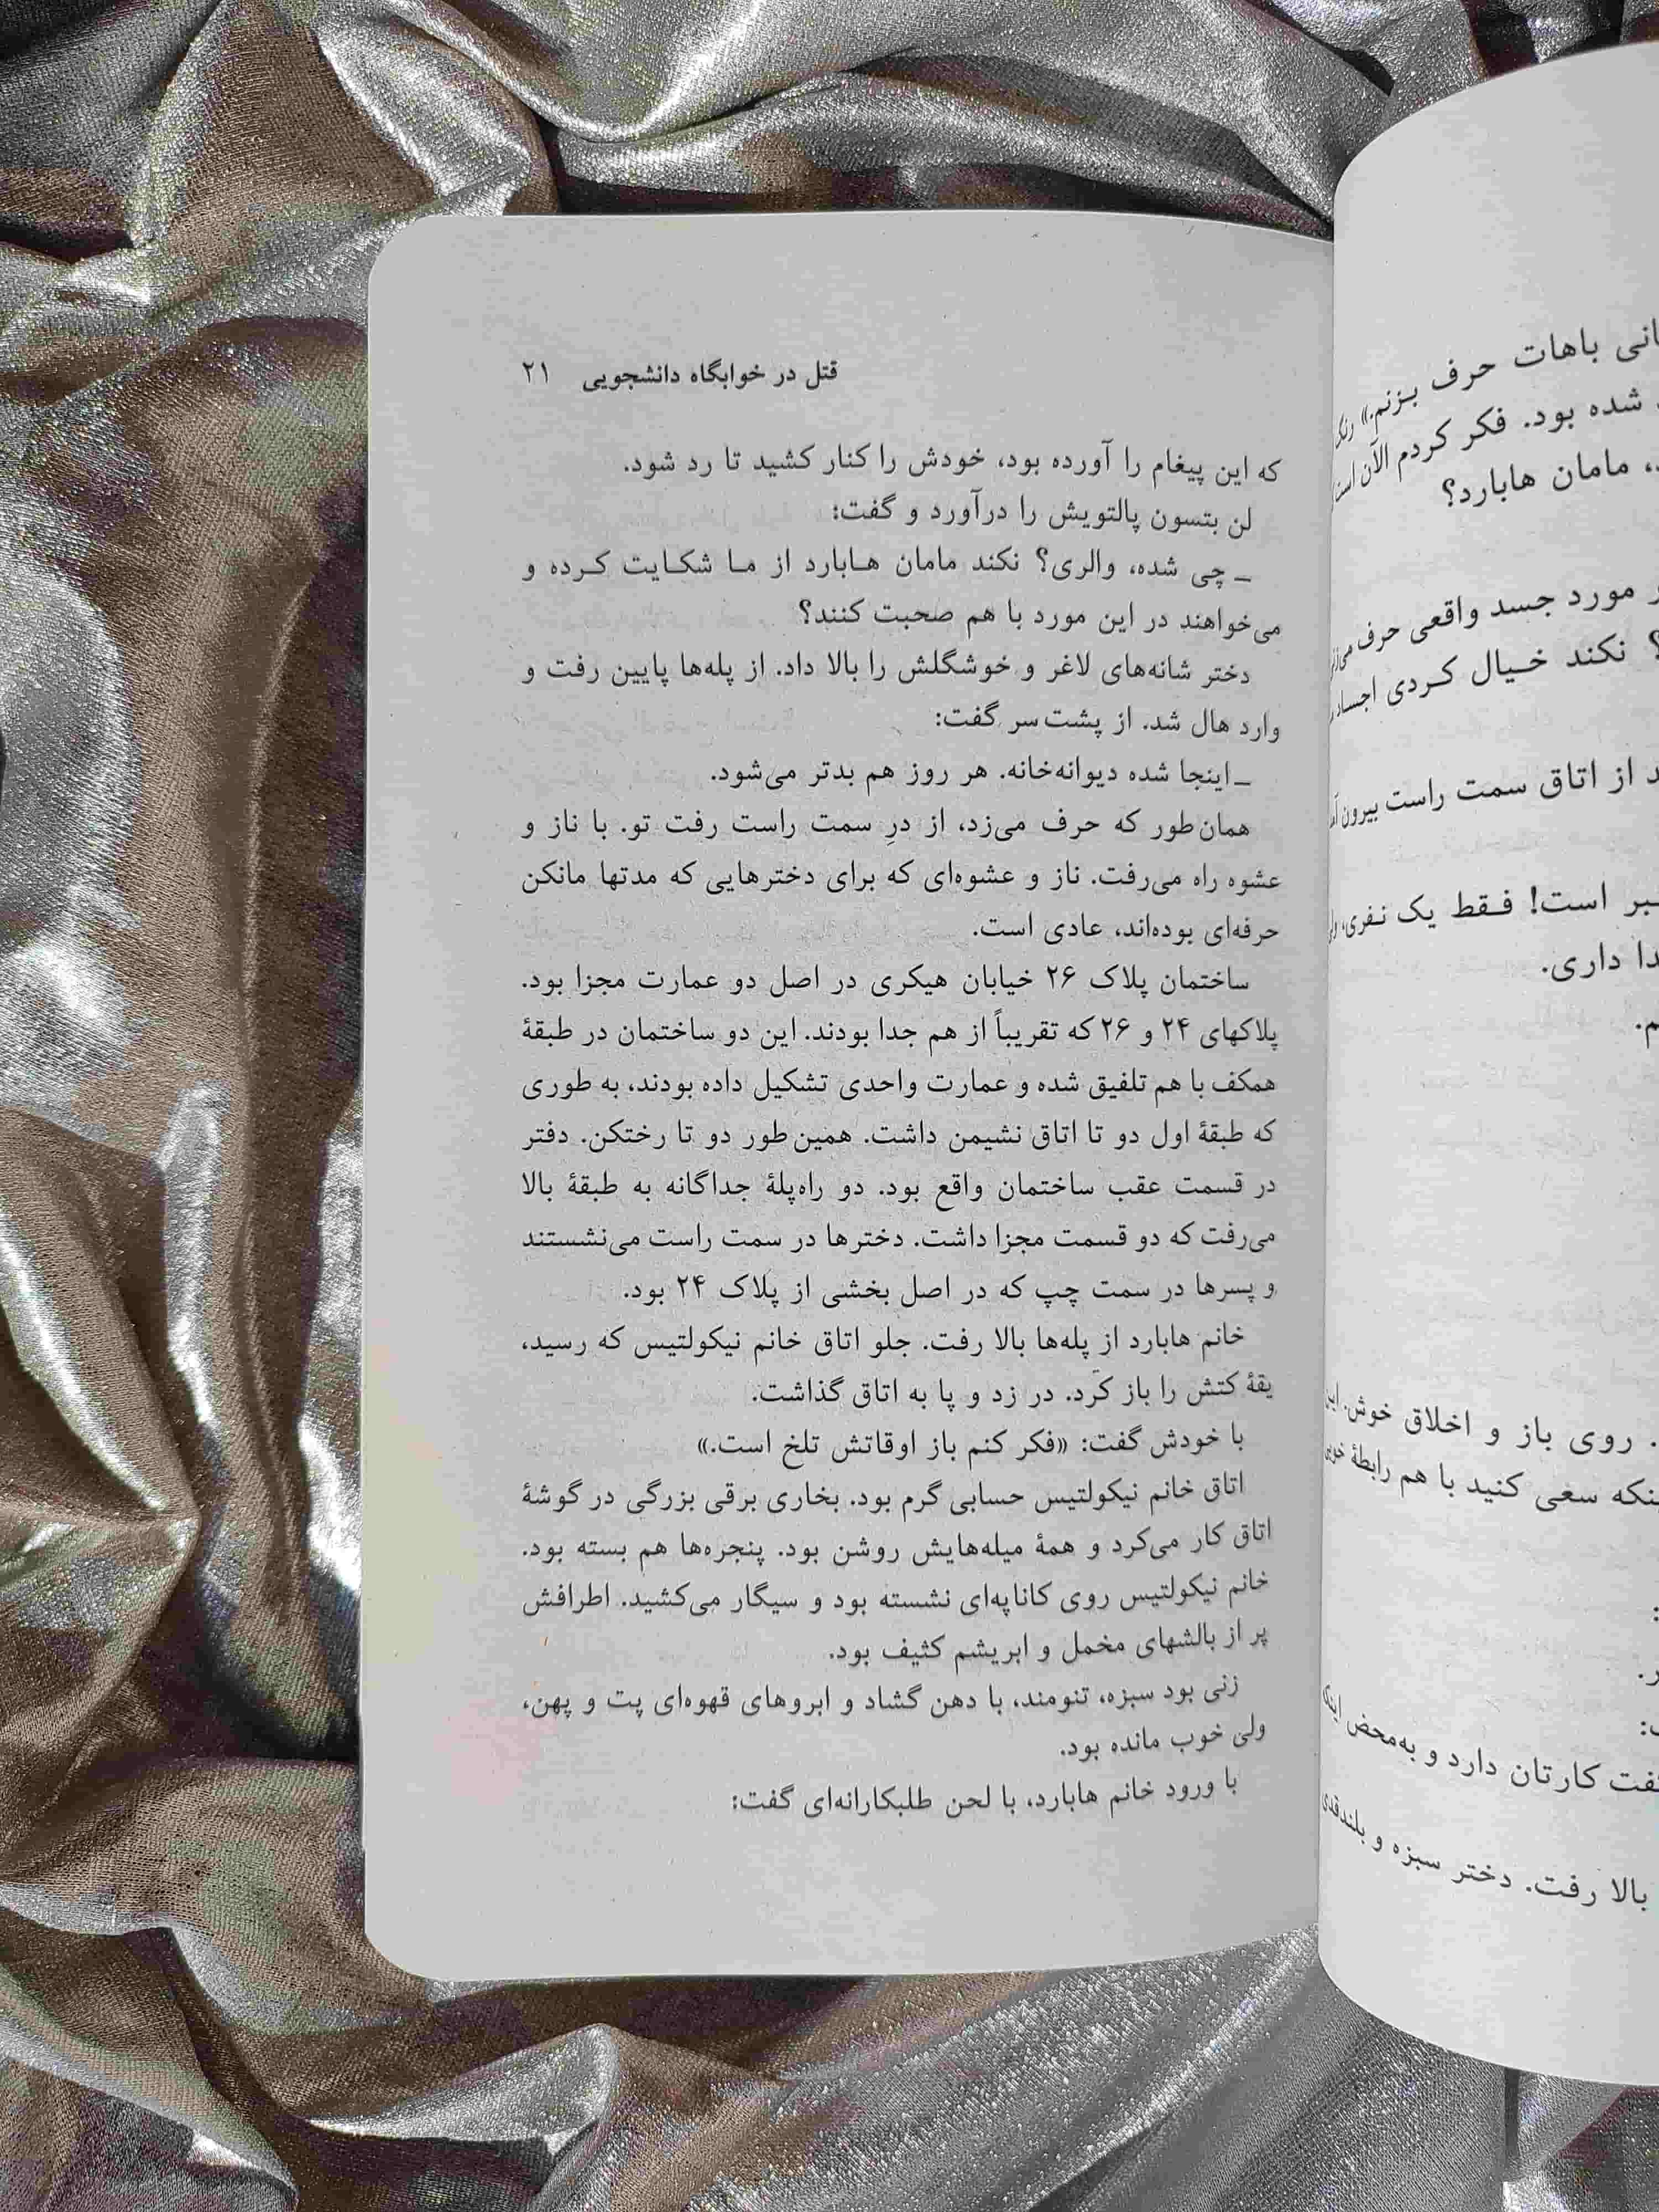 قتل در خوابگاه دانشجویی ۲۱
که این پیغام را آورده بود، خودش را کنار کشید تا رد شود.
لن بتسون پالتویش را درآورد و گفت:
ـ چی شده، والری؟ نکند مامان هابارد از ما شکایت کرده و
می‌خواهند در این مورد با هم صحبت کنند؟
دختر شانه‌های لاغر و خوشگلش را بالا داد. از پله‌ها پایین رفت و
وارد هال شد. از پشت سر گفت:
ـ اینجا شده دیوانه‌خانه. هر روز هم بدتر می‌شود.
همان‌طور که حرف می‌زد، از درِ سمت راست رفت تو. با ناز و
عشوه راه می‌رفت. ناز و عشوه‌ای که برای دخترهایی که مدتها مانکن
حرفه‌ای بوده‌اند، عادی است.
ساختمان پلاک ۲۶ خیابان هیکری در اصل دو عمارت مجزا بود.
پلاکهای ۲۴ و ۲۶ که تقریباً از هم جدا بودند. این دو ساختمان در طبقهٔ
همکف با هم تلفیق شده و عمارت واحدی تشکیل داده بودند، به طوری
که طبقهٔ اول دو تا اتاق نشیمن داشت. همین‌طور دو تا رختکن. دفتر
در قسمت عقب ساختمان واقع بود. دو راه‌پلهٔ جداگانه به طبقهٔ بالا
می‌رفت که دو قسمت مجزا داشت. دخترها در سمت راست می‌نشستند
و پسرها در سمت چپ که در اصل بخشی از پلاک ۲۴ بود.
خانم هابارد از پله‌ها بالا رفت. جلو اتاق خانم نیکولتیس که رسید،
یقهٔ کتش را باز کرد. در زد و پا به اتاق گذاشت.
با خودش گفت: «فکر کنم باز اوقاتش تلخ است.»
اتاق خانم نیکولتیس حسابی گرم بود. بخاری برقی بزرگی در گوشهٔ
اتاق کار می‌کرد و همهٔ میله‌هایش روشن بود. پنجره‌ها هم بسته بود.
خانم نیکولتیس روی کاناپه‌ای نشسته بود و سیگار می‌کشید. اطرافش
پر از بالشهای مخمل و ابریشم کثیف بود.
زنی بود سبزه، تنومند، با دهن گشاد و ابروهای قهوه‌ای پت و پهن،
ولی خوب مانده بود.
با ورود خانم هابارد، با لحن طلبکارانه‌ای گفت:
باهات حرف بزنم.»
شده بود. فکر کردم الآن
مامان هابارد؟
مورد جسد واقعی حرف
نکند خیال کردی
از اتاق سمت راست بیرون
است! فقط یک نفری،
داری.
روی باز و اخلاق خوش.
سعی کنید با هم رابطهٔ
کارتان دارد و به‌محض
بالا رفت. دختر سبزه و بلندقدی